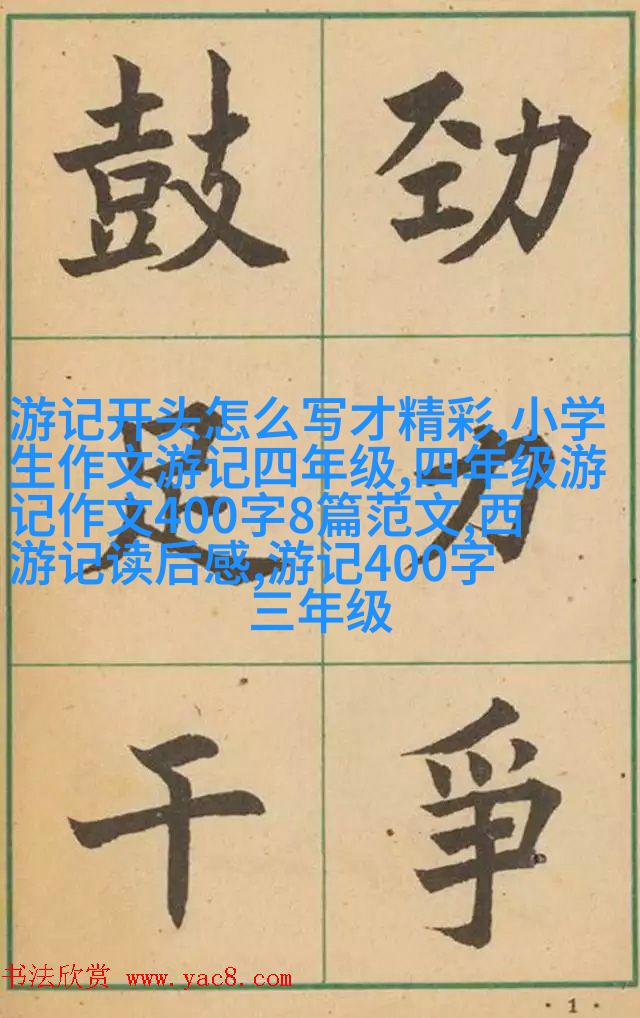 鼓足干
劲力爭
游记开头怎么写才精彩,小学
生作文游记四年级,四年级游
记作文400字8篇范文,西
游记读后感,游记400字
三年级
书法欣赏 www.yac8.com
·1·